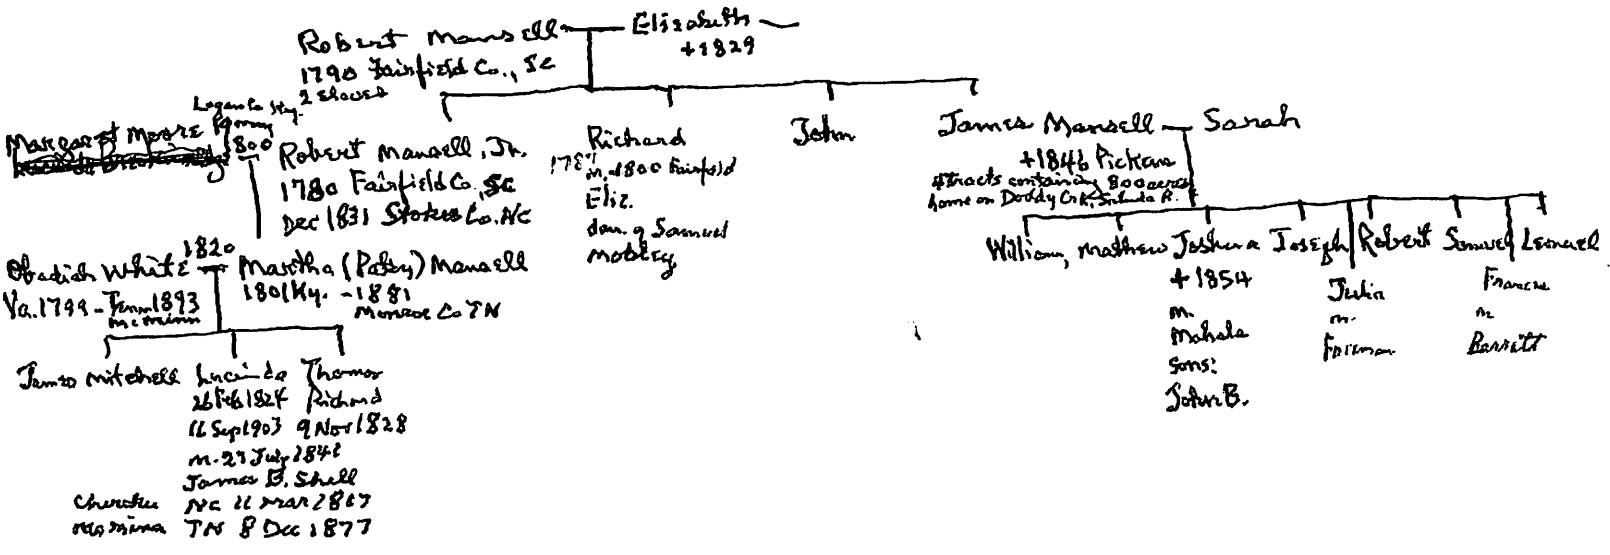 Robert Mansell Elizabeth
+1829
1790 Fairfield Co., SC
2 slaves
Logan Co Ky.
Margaret Moore
1800
Robert Mansell, Jr.
1780 Fairfield Co. SC
Dec 1831 Stokes Co. NC
Richard
m. 1800 Fairfield
Eliz.
dau. of Samuel
Mobley
John
James Mansell Sarah
+1846 Pickens
4 tracts containing 800 acres
home on Doddy Crk, Saluda R.
William, Mathew Joshua Joseph Robert Samuel Lemuel
+1854
m.
Mahala
sons:
John B.
Julia
m.
Freeman
m
Barrett
Obadiah White 1820 Martha (Patsy) Mansell
Va. 1799 - Tenn 1893
McMinn
1801 Ky. - 1881
Monroe Co TN
James Mitchell Lucinda Thomas
26 Feb 1824 Richard
11 Sep 1903 9 Nov 1828
m. 27 July 1841
James B. Shell
Cherokee NC 11 Mar 1867
McMinn TN 8 Dec 1877